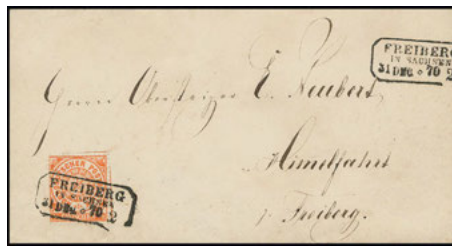 FREIBERG
IN SACHSEN
31 DEC 70 2
Herrn Obersteiger E. Neubert
Himelfahrt
b. Freiberg.
FREIBERG
IN SACHSEN
31 DEC 70 2